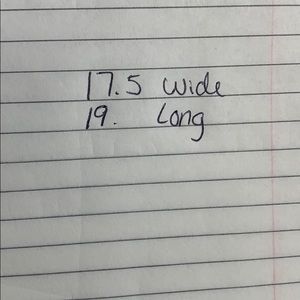 17.5 wide
19. Long